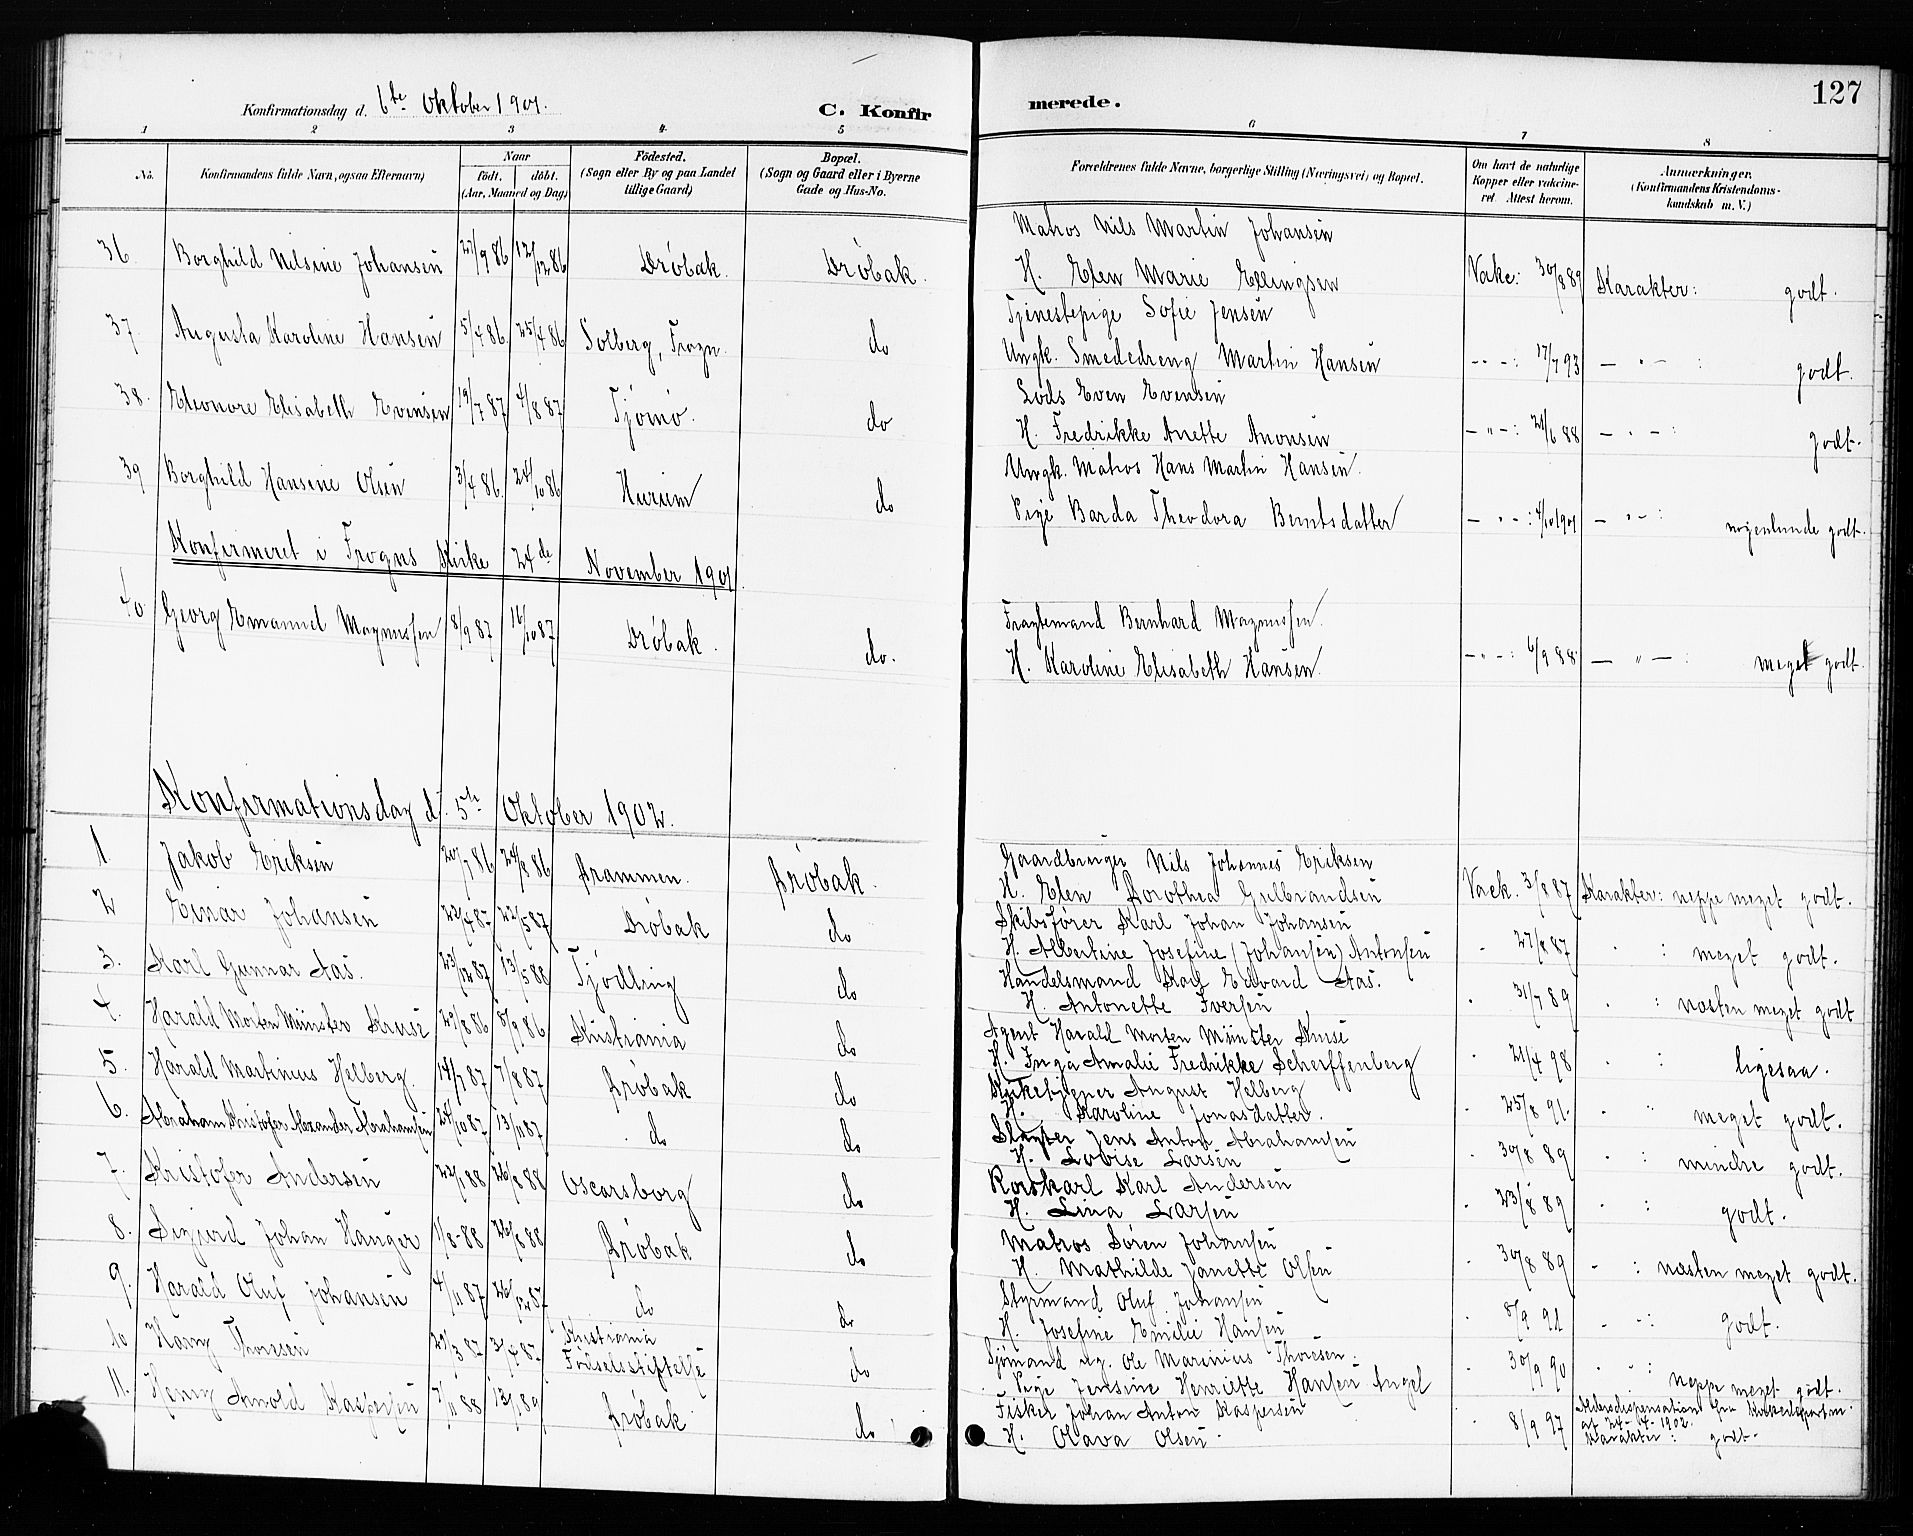 127
Konfirmationsdag d. 6te Oktober 1901.
C. Konfirmerede.
1 2 3 4 5 6 7 8
No.
Konfirmandens fulde Navn, ogsaa Efternavn)
Naar
födt. döbt.
(Aar, Maaned og Dag)
Födested.
(Sogn eller By og paa Landet
tillige Gaard)
Bopæl.
(Sogn og Gaard eller i Byerne
Gade og Hus-No.
Forældrenes fulde Navne, borgerlige Stilling (Næringsvei) og Bopæl.
Om havt de naturlige
Kopper eller vakcine-
ret. Attest herom.
Anmærkninger.
(Konfirmandens Kristendoms-
kundskab m. V.)
Matros Nils Martin Johansen
36. Borghild Nilsine Johansen 27/9 86 12/12 86 Drøbak. Drøbak. H. Elen Marie Ellingsen Vakc: 30/8 89 Karakter: godt.
Tjenestepige Sofie Jensen
37. Augusta Karoline Hansen 5/4 86. 25/4 86 Solberg, Frogn. do Ungk. Smededreng Martin Hansen — " — : 17/7 93 — " — : godt.
Lods Even Evensen
38. Eleonore Elisabeth Evensen 19/7 87 4/8 87 Tjømø. do H. Fredrikke Anette Anonsen — " — : 21/6 88 — " — : godt.
Ungk. Matros Hans Martin Hansen.
39 Borghild Hansine Olsen 3/4 86. 24/10 86 Hurum do Pige Barda Theodora Berntsdatter — " — : 4/10 1901 — " — : nogenlunde godt.
Konfirmeret i Frogns Kirke 24de November 1901
Fragtemand Bernhard Magnussen.
40 Georg Emanuel Magnussen 8/9 87 16/10 87 Drøbak. do. H. Karoline Elisabeth Hansen. — " — : 6/9 88 — " — : meget godt.
Konfirmationsdag d. 5te Oktober 1902.
Gaardbruger Nils Johannes Eriksen
1. Jakob Eriksen 20/7 86 24/8 86 Drammen. Drøbak. H. Elen Dorothea Gulbrandsen Vack. 3/8 87 Karakter: neppe meget godt.
Skibsfører Karl Johan Johansen
2 Einar Johansen 22/4 87 22/5 87 Drøbak do H. Albertine Josefine (Johansen) Antonsen " 27/8 87 " : meget godt.
Handelsmand Karl Edvard Aas.
3. Karl Gunnar Aas. 23/12 87 13/5 88 Tjødling do H. Antonette Iversen " 31/7 89 " : næsten meget godt
Agent Harald Morten Münster Kruse
4. Harald Morten Münster Kruse 29/8 86 8/9 86 Kristiania do H. Inga Amalie Fredrikke Scherffenberg " 21/4 98 " : ligesaa.
Kirketjener August Helberg
5. Harald Martinius Helberg. 14/7 87 7/8 87 Drøbak do H. Karoline Jonasdatter. " 25/8 91. " " meget godt.
Slagter Jens Anton Abrahamsen
6. Abraham Kristofer Alexander Abrahamsen 24/10 87 13/11 87 do do H. Lovise Larsen " 30/8 89 " : mindre godt.
Rorskarl Karl Andersen
7. Kristofer Andersen 22/1 88 26/8 88 Oscarsborg do H. Lina Larsen " 23/8 89 " : godt.
Matros Søren Johansen
8. Sigurd Johan Hanger 1/8 - 88 26/8 88 Drøbak do H. Mathilde Janette Olsen " 30/8 89 " : næsten meget godt.
Styrmand Oluf Johansen
9. Harald Oluf Johansen 4/11 87 26/12 87 do do H. Josefine Emilie Hansen " 8/9 91 " " : godt.
Sjømand ug. Ole Marinius Thoresen.
10 Harry Thoresen 29/3 87 3/4 87 Kristiania Fødselsstiftelse do Pige Jensine Henriette Hansen Angel " 30/9 90 " " : neppe meget godt.
Fisker Johan Anton Kaspersen
11. Henry Arnold Kaspersen 7/11 88 13/1 89 Drøbak do H. Olava Olsen. " 8/9 97 Aldersdispensation fra Kirkedepartm.
af 24-4-1902.
Karakter: godt.